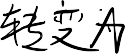 转变为